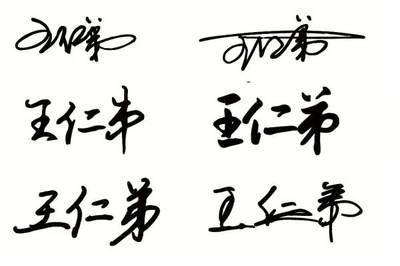 王仁弟 王仁弟
王仁弟 王仁弟
王仁弟 王仁弟